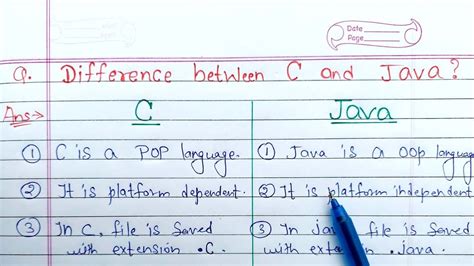 Date
Page
Q. Difference between C and Java?
Ans:→ C Java
① C is a POP language. ① Java is a OOP language
② It is platform dependent. ② It is platform independent
③ In C, file is saved ③ In java file is saved
with extension .C. with .java.